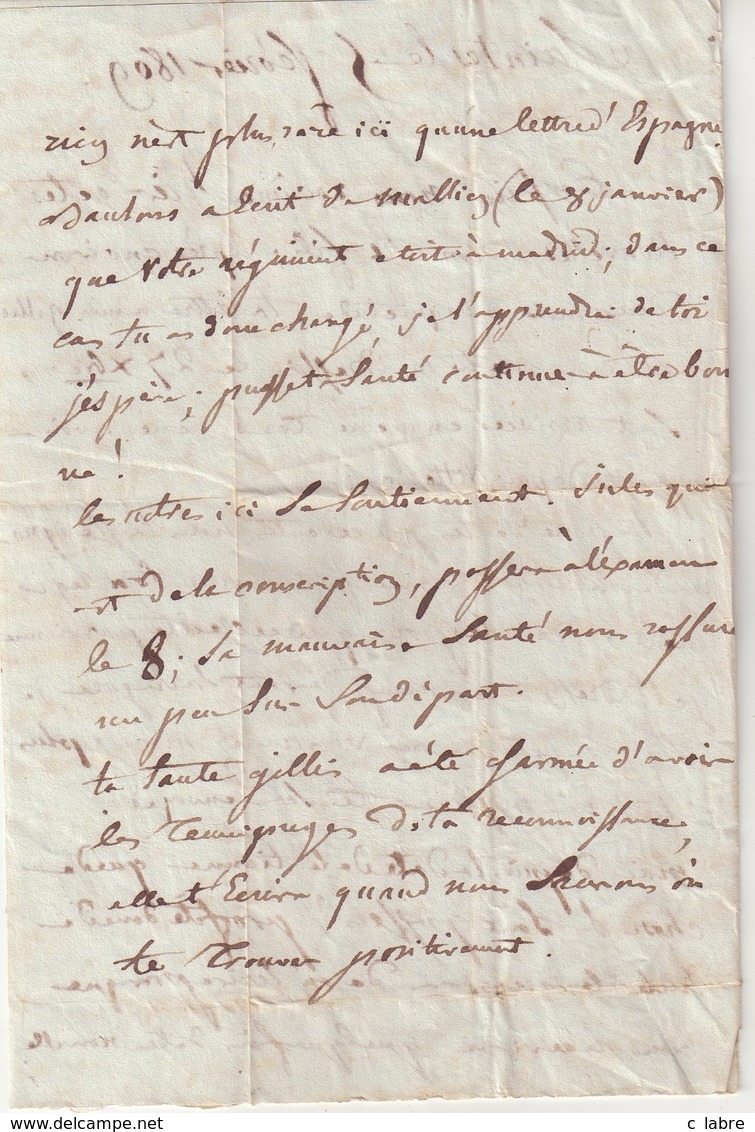 rien n'est plus rare ici qu'une lettre d'Espagne.
a Ecrit de (le 8 janvier)
que votre régiment etoit à madrid; dans ce
cas tu as donc changé, je l'apprendrai de toi
j'espère; puisse ta Santé continue à être bon
ne!
les notres ici Se Soutiennent. Jules qui
est de la conscription, passera à l'examen
le 8; Sa mauvaise Santé nous rassure
un peu Sur Son départ.
ta tante gillis a été charmée d'avoir
les Temoignages de ta reconnoissance,
elle t'Ecrira quand nous Saurons où
te Trouver positivement.
www.delcampe.net
c labre